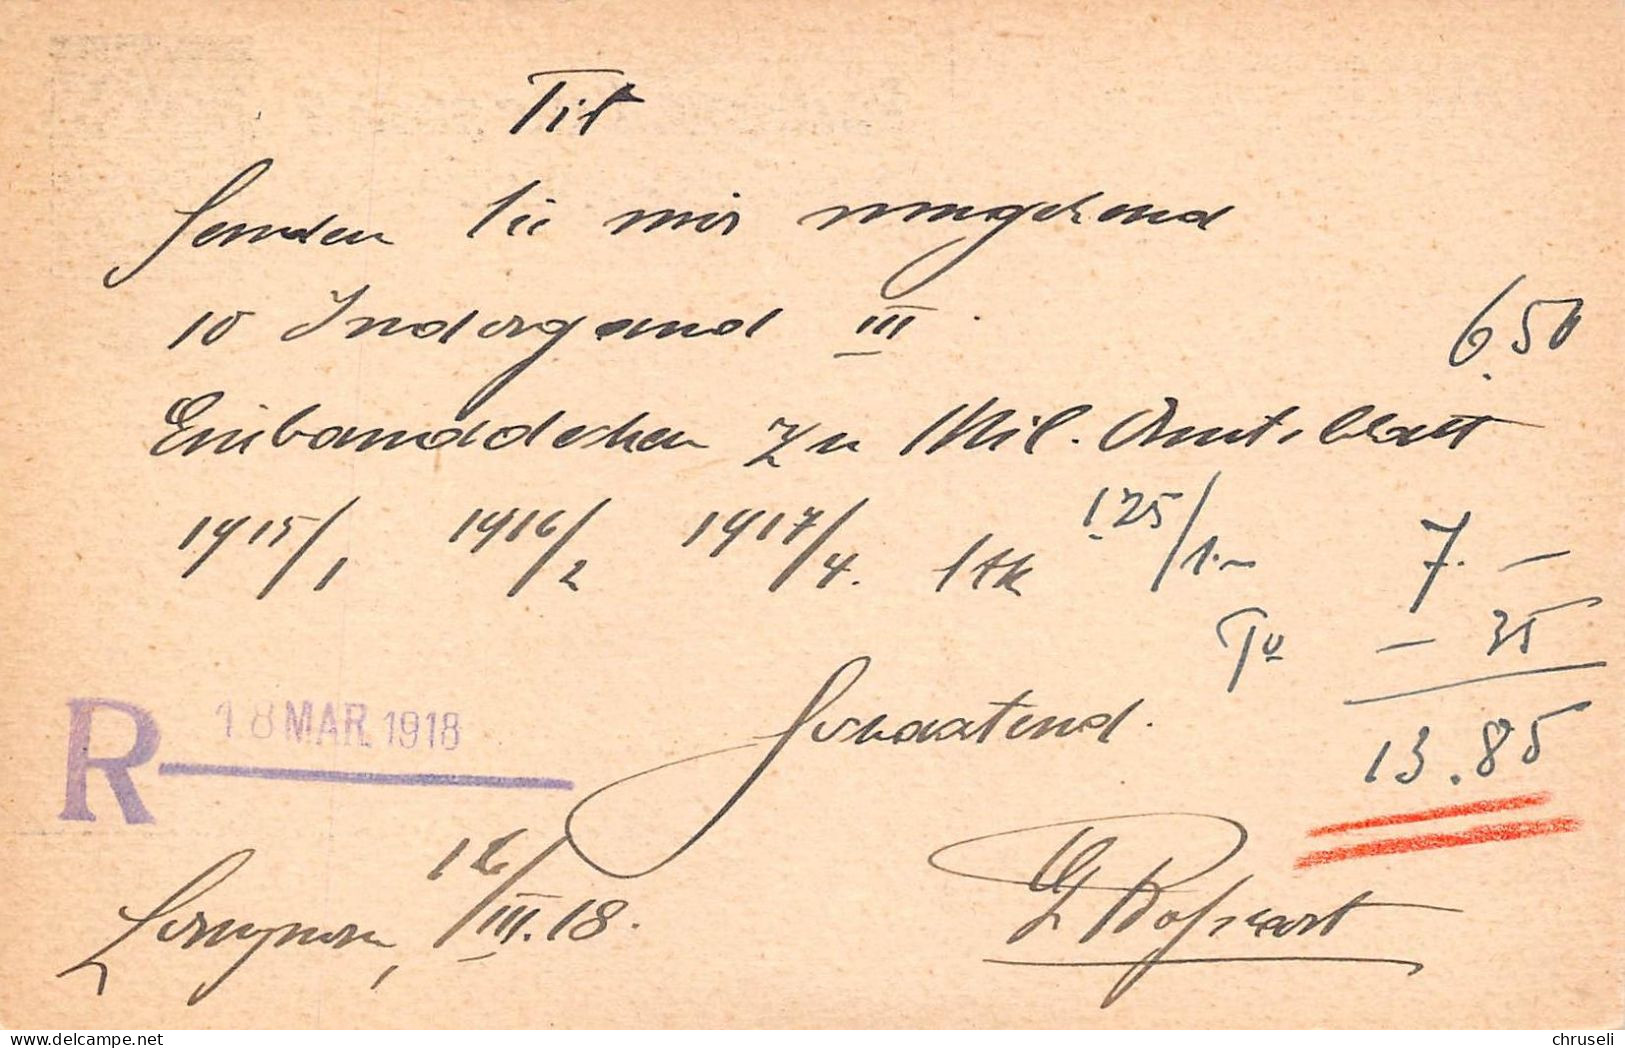 Tit
Senden Sie mir umgehend
10 Indergand III. 6.50
Einbanddecken zu Mil. Amtsblatt
1915/1 1916/2 1917/4. Stk 1.25/1.– 7.–
Po – 35
Hochachtend.
13.85
R 18 MAR 1918
16/III.18.
delcampe.net
chruseli